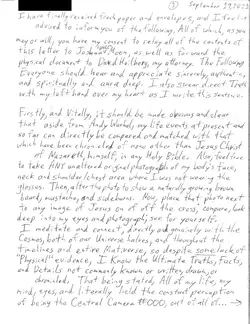 ① September 29, 2023
I have finally received fresh paper and envelopes, and I feel
advised to inform you of the following, All of which, as you
may or will, you have my consent to relay all of the contents of
this letter to Joshua Moen, as well as forward the
physical document to David Hallberg, my attorney. The Following
Everyone should hear and appreciate sincerely, authentically
and spiritually and aura deep. I also swear direct Truth
with my left hand over my heart as I write this sentence.
Firstly, and Vitally, it should be made obvious and clear
that aside from Andy Warhol, my life events at present and
so far can directly be compared and matched with that
which have been chronicled of none other than Jesus Christ
of Nazareth, himself, in any Holy Bible. Also, feel free
to take ANY unaltered original photographs of my body's face,
neck and shoulder/chest area when I was not wearing the
glasses. Then, alter the photo to show a naturally growing brown
beard, mustache, and sideburns. Now, place that photo next
to any image of Jesus on or off the cross, compare, look
deep into my eyes and photographs; see for yourself.
I meditate and connect, directly and genuinely with the
Cosmos, both of our Universe halves, and throughout the
timelines and entire Metaverse, so despite some lack of
"Physical" evidence, I know the Ultimate Truths, Facts,
and Details not commonly known or written, drawn, or
chronicled. That being stated, All of my life, my
mind, eyes, and literally field the constant perception
of being the Central Camera #000, out of all of... →